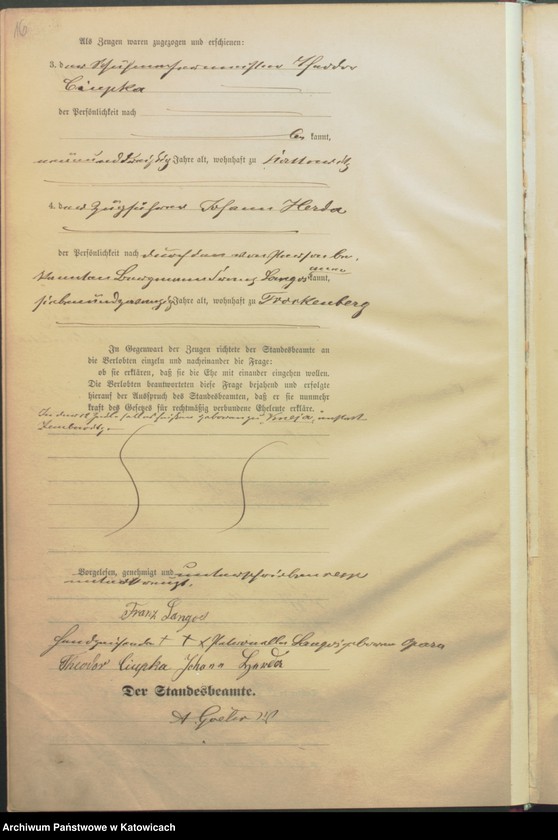 16
Als Zeugen waren zugezogen und erschienen:
3. der Schuhmachermeister Theodor
Ciupka
der Persönlichkeit nach
be kannt,
neununddreißig Jahre alt, wohnhaft zu Kattowitz
4. der Zugführer Johann Herda
der Persönlichkeit nach durch den von Person be-
kannten Bergmann Franz Langos kannt,
siebenundzwanzig Jahre alt, wohnhaft zu Trockenberg
In Gegenwart der Zeugen richtete der Standesbeamte an
die Verlobten einzeln und nacheinander die Frage:
ob sie erklären, daß sie die Ehe mit einander eingehen wollen.
Die Verlobten beantworteten diese Frage bejahend und erfolgte
hierauf der Ausspruch des Standesbeamten, daß er sie nunmehr
kraft des Gesetzes für rechtmäßig verbundene Eheleute erkläre.
In der Zeile soll es heißen geborenen anstatt
Vorgelesen, genehmigt und unterschrieben resp
unterkreuzt.
Franz Langos
Handzeichen † † † Petronella Langos geborene
Theodor Ciupka Johann Herda
Der Standesbeamte.
Archiwum Państwowe w Katowicach